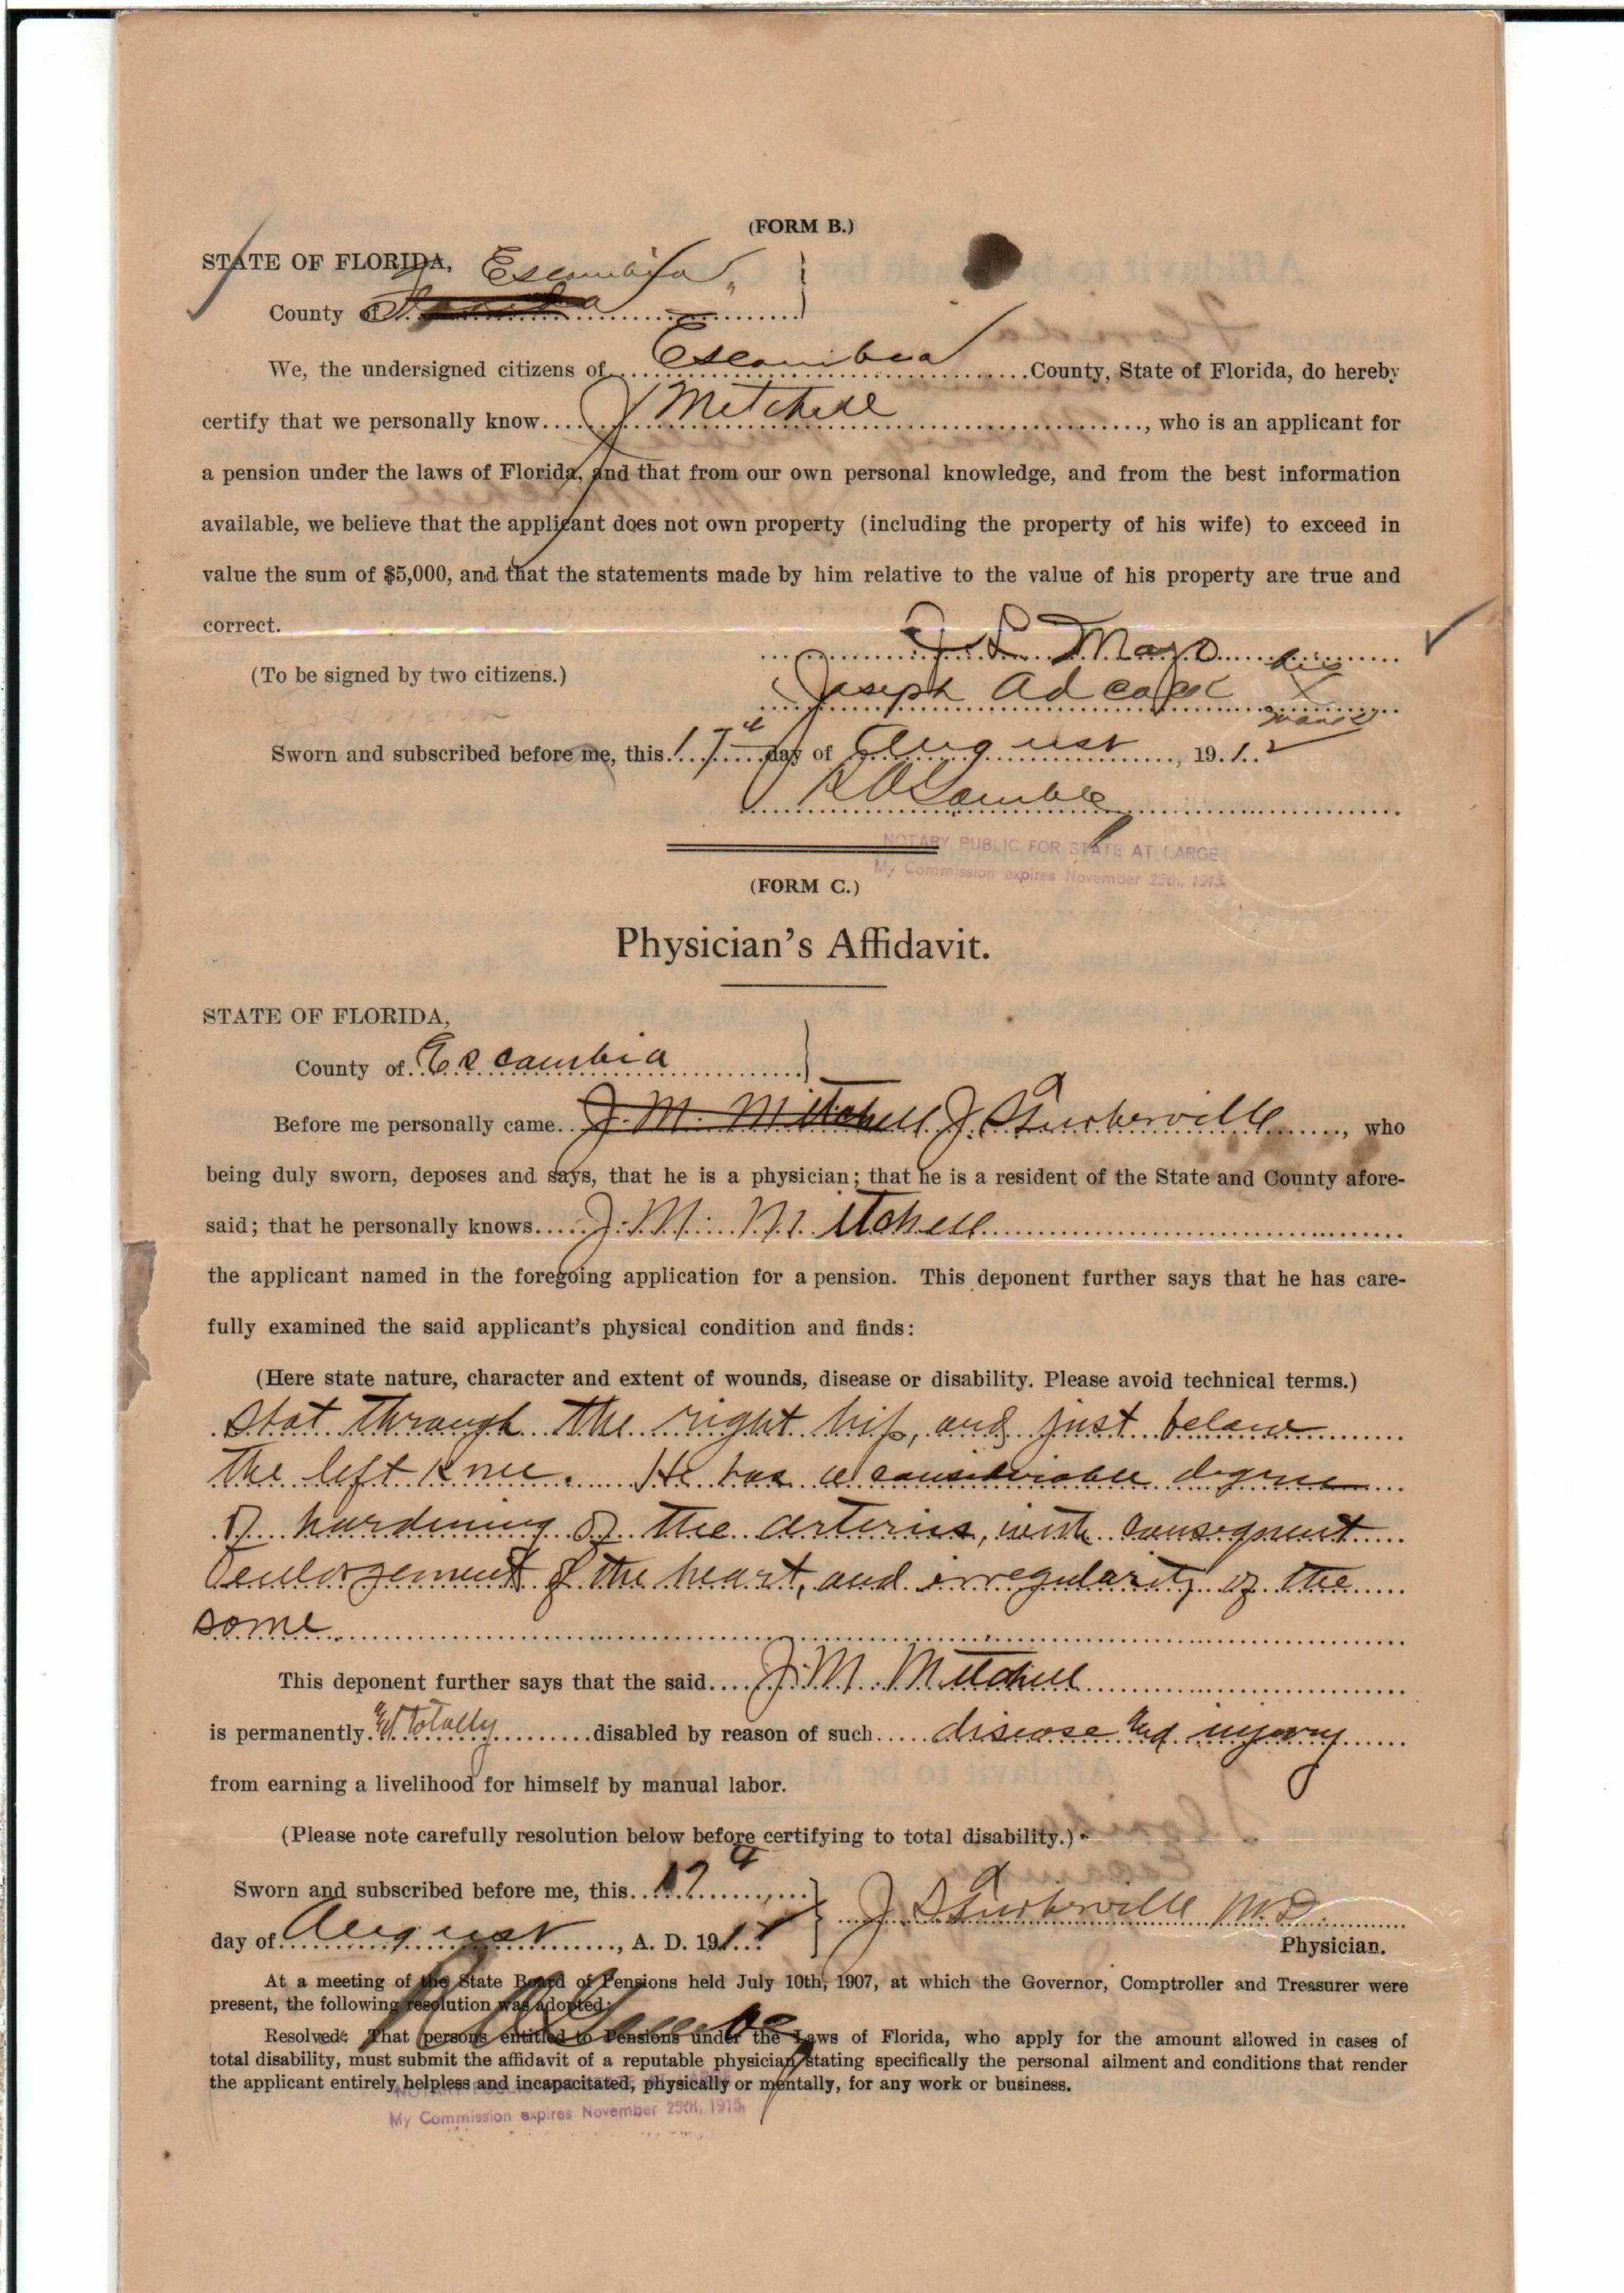 (FORM B.)
STATE OF FLORIDA, Escambia
County of
We, the undersigned citizens of Escambia County, State of Florida, do hereby
certify that we personally know J Mitchell, who is an applicant for
a pension under the laws of Florida, and that from our own personal knowledge, and from the best information
available, we believe that the applicant does not own property (including the property of his wife) to exceed in
value the sum of $5,000, and that the statements made by him relative to the value of his property are true and
correct.
J. L. Mayo
(To be signed by two citizens.)
Joseph Adcock his X mark
Sworn and subscribed before me, this 17th day of August, 1912
NOTARY PUBLIC FOR STATE AT LARGE
My Commission expires November 25th, 1915
(FORM C.)
Physician's Affidavit.
STATE OF FLORIDA,
County of Escambia
Before me personally came J. M. Mitchell J. S. Turberville, who
being duly sworn, deposes and says, that he is a physician; that he is a resident of the State and County afore-
said; that he personally knows J. M. Mitchell
the applicant named in the foregoing application for a pension. This deponent further says that he has care-
fully examined the said applicant's physical condition and finds:
(Here state nature, character and extent of wounds, disease or disability. Please avoid technical terms.)
Shot through the right hip, and just below
the left knee. He has a considerable degree
of hardening of the arteries, with consequent
enlargement of the heart, and irregularity of the
same
This deponent further says that the said J. M. Mitchell
is permanently and totally disabled by reason of such disease and injury
from earning a livelihood for himself by manual labor.
(Please note carefully resolution below before certifying to total disability.)
Sworn and subscribed before me, this 17
J S Turberville M.D.
day of August, A. D. 191
Physician.
At a meeting of the State Board of Pensions held July 10th, 1907, at which the Governor, Comptroller and Treasurer were
present, the following resolution was adopted:
Resolved: That persons entitled to Pensions under the Laws of Florida, who apply for the amount allowed in cases of
total disability, must submit the affidavit of a reputable physician stating specifically the personal ailment and conditions that render
the applicant entirely helpless and incapacitated, physically or mentally, for any work or business.
My Commission expires November 25th, 1915